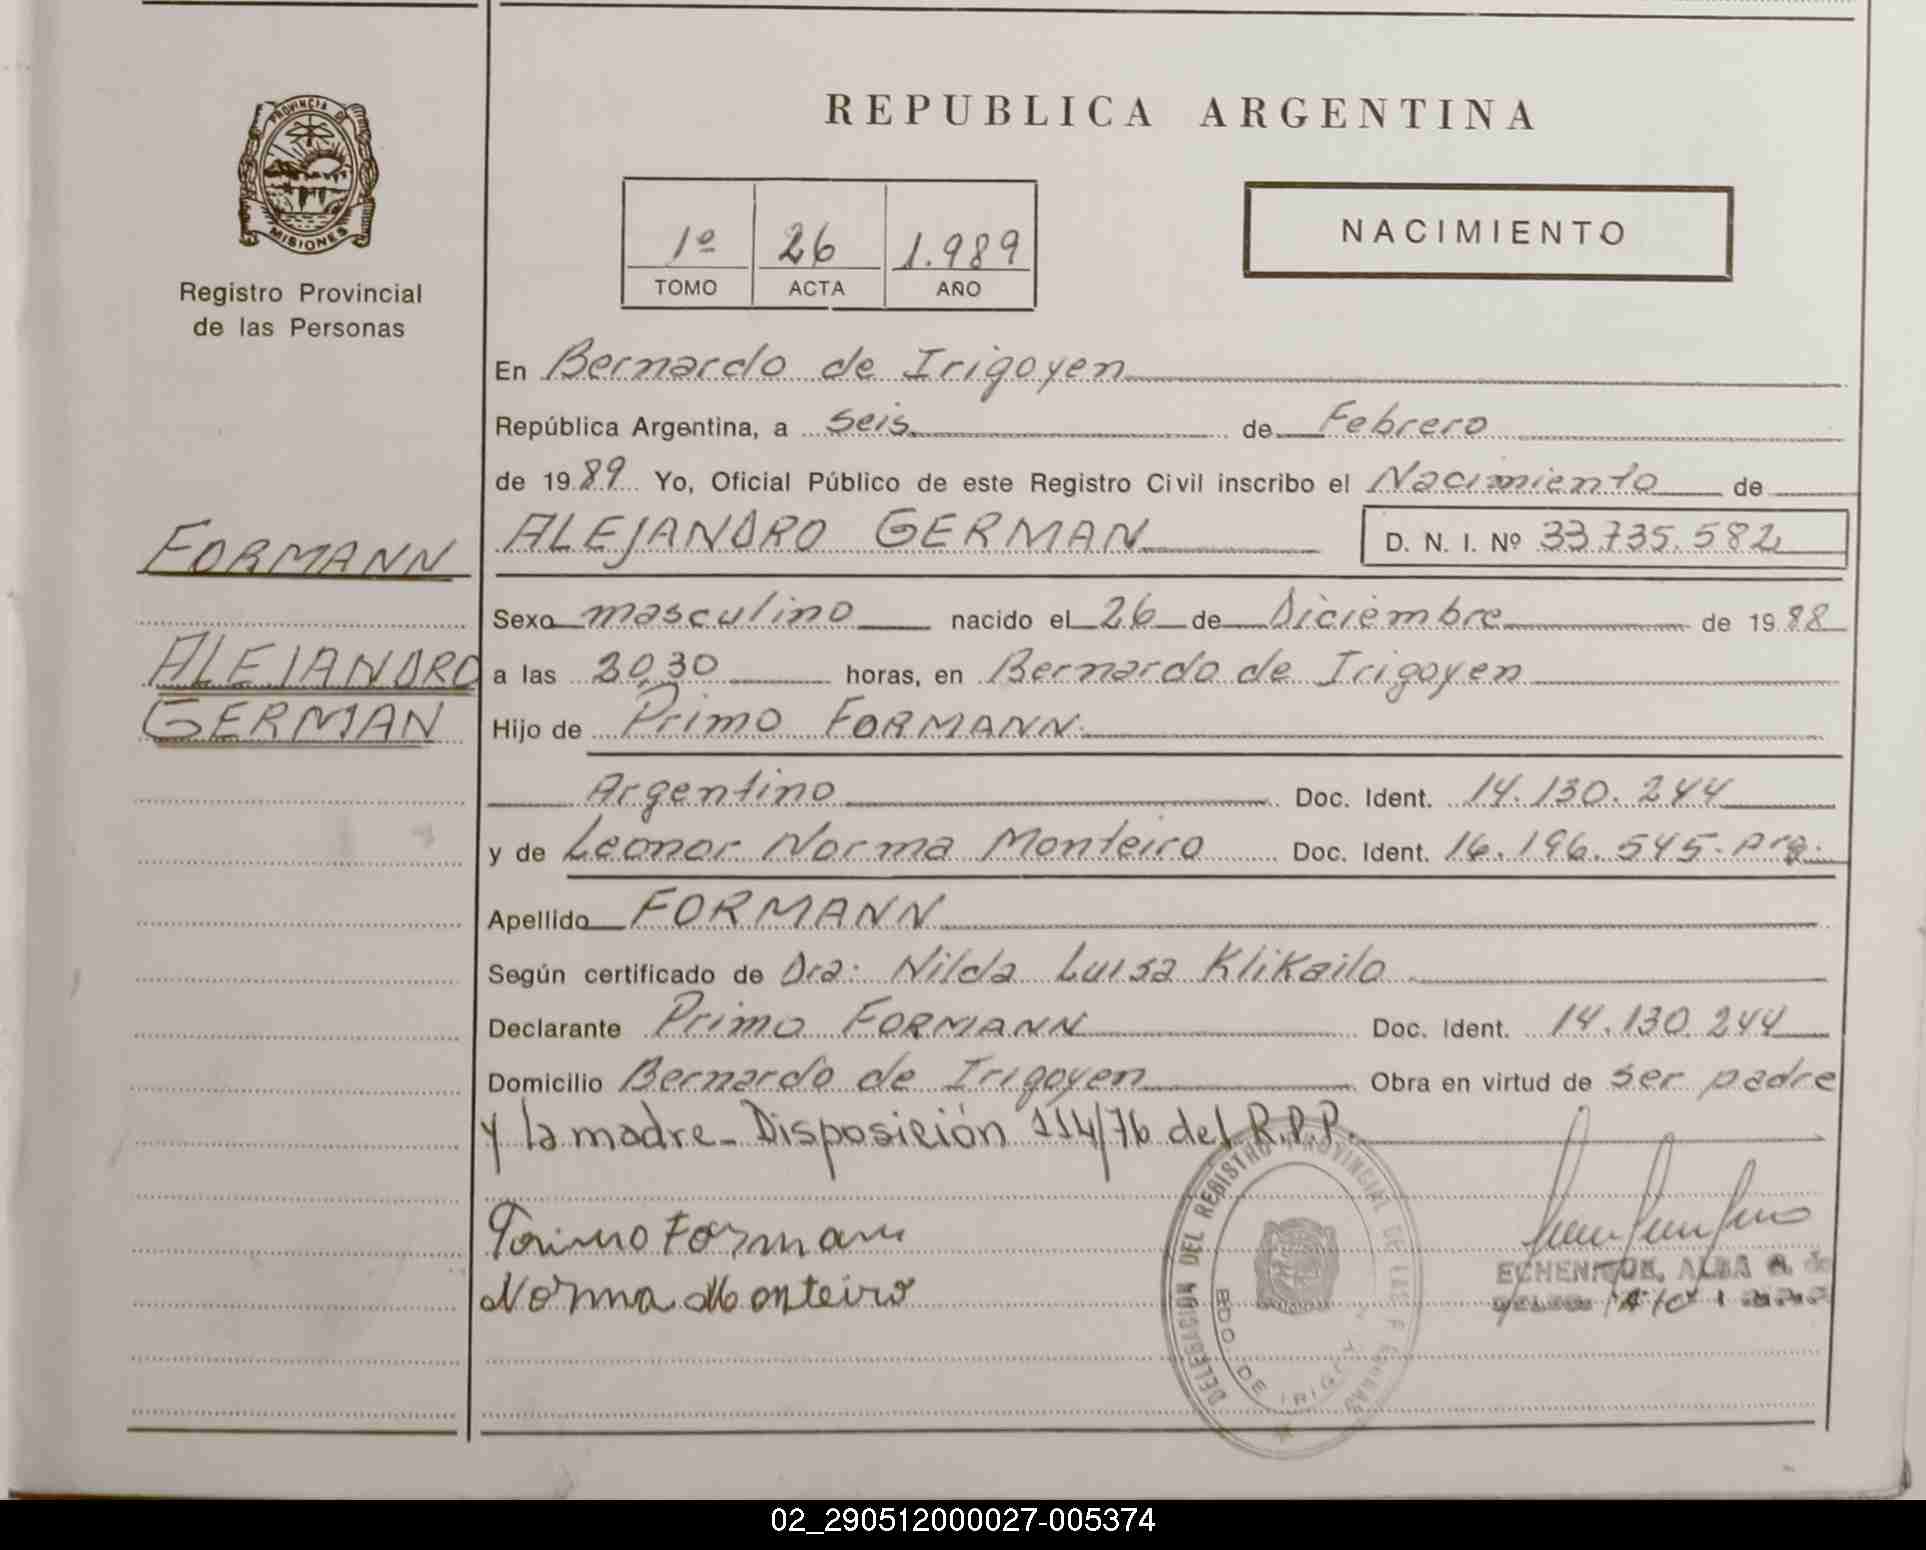 PROVINCIA DE
MISIONES
Registro Provincial
de las Personas
FORMANN
ALEJANDRO
GERMAN
REPUBLICA ARGENTINA
1º 26 1.989
TOMO ACTA AÑO
NACIMIENTO
En Bernardo de Irigoyen
República Argentina, a seis de Febrero
de 1989 Yo, Oficial Público de este Registro Civil inscribo el Nacimiento de
ALEJANDRO GERMAN D. N. I. Nº 33.735.582
Sexo masculino nacido el 26 de Diciembre de 1988
a las 2030 horas, en Bernardo de Irigoyen
Hijo de Primo FORMANN
Argentino Doc. Ident. 14.130.244
y de Leonor Norma Monteiro Doc. Ident. 16.196.545. Arg.
Apellido FORMANN
Según certificado de Dra: Nilda Luisa Klikailo
Declarante Primo FORMANN Doc. Ident. 14.130.244
Domicilio Bernardo de Irigoyen Obra en virtud de ser padre
y la madre_ Disposición 114/76 del R.P.P.
Primo Formann
Norma Monteiro
DELEGACION DEL REGISTRO PROVINCIAL DE LAS PERSONAS
BDO DE IRIGOYEN
ALBA
02_290512000027-005374